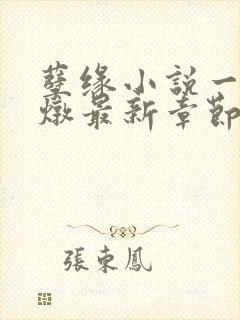 孽缘小説一
燉最新章節
張東鳳